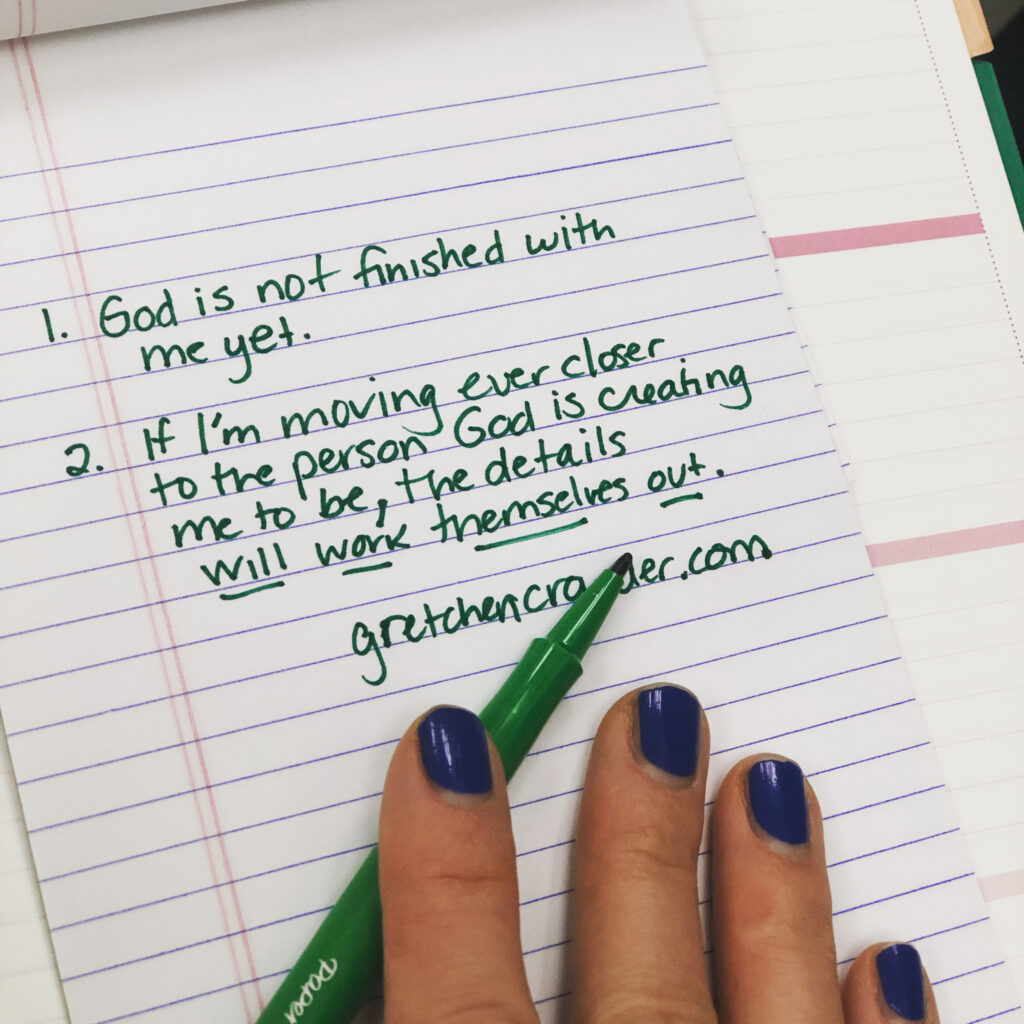 1. God is not finished with
me yet.
2. If I'm moving ever closer
to the person God is creating
me to be, the details
will work themselves out.
Paper